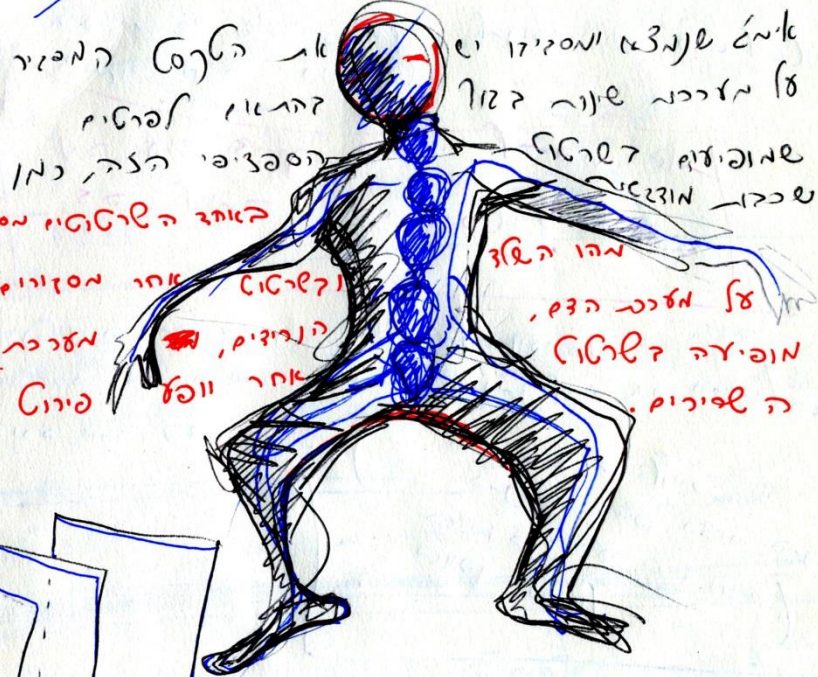 אימג' שנמצא ומסביבו יש את הטקסט המסביר
על מערכות שונות בגוף בהתאם לפרטים
שמופיעים בשרטוט הספציפי הזה, כמו
שכבות
באחד השרטוטים מס
מהו השלד ובשרטוט אחר מסבירים
על מערכת הדם, הורידים, מערכת
מופיעה בשרטוט אחר פירוט
השרירים.